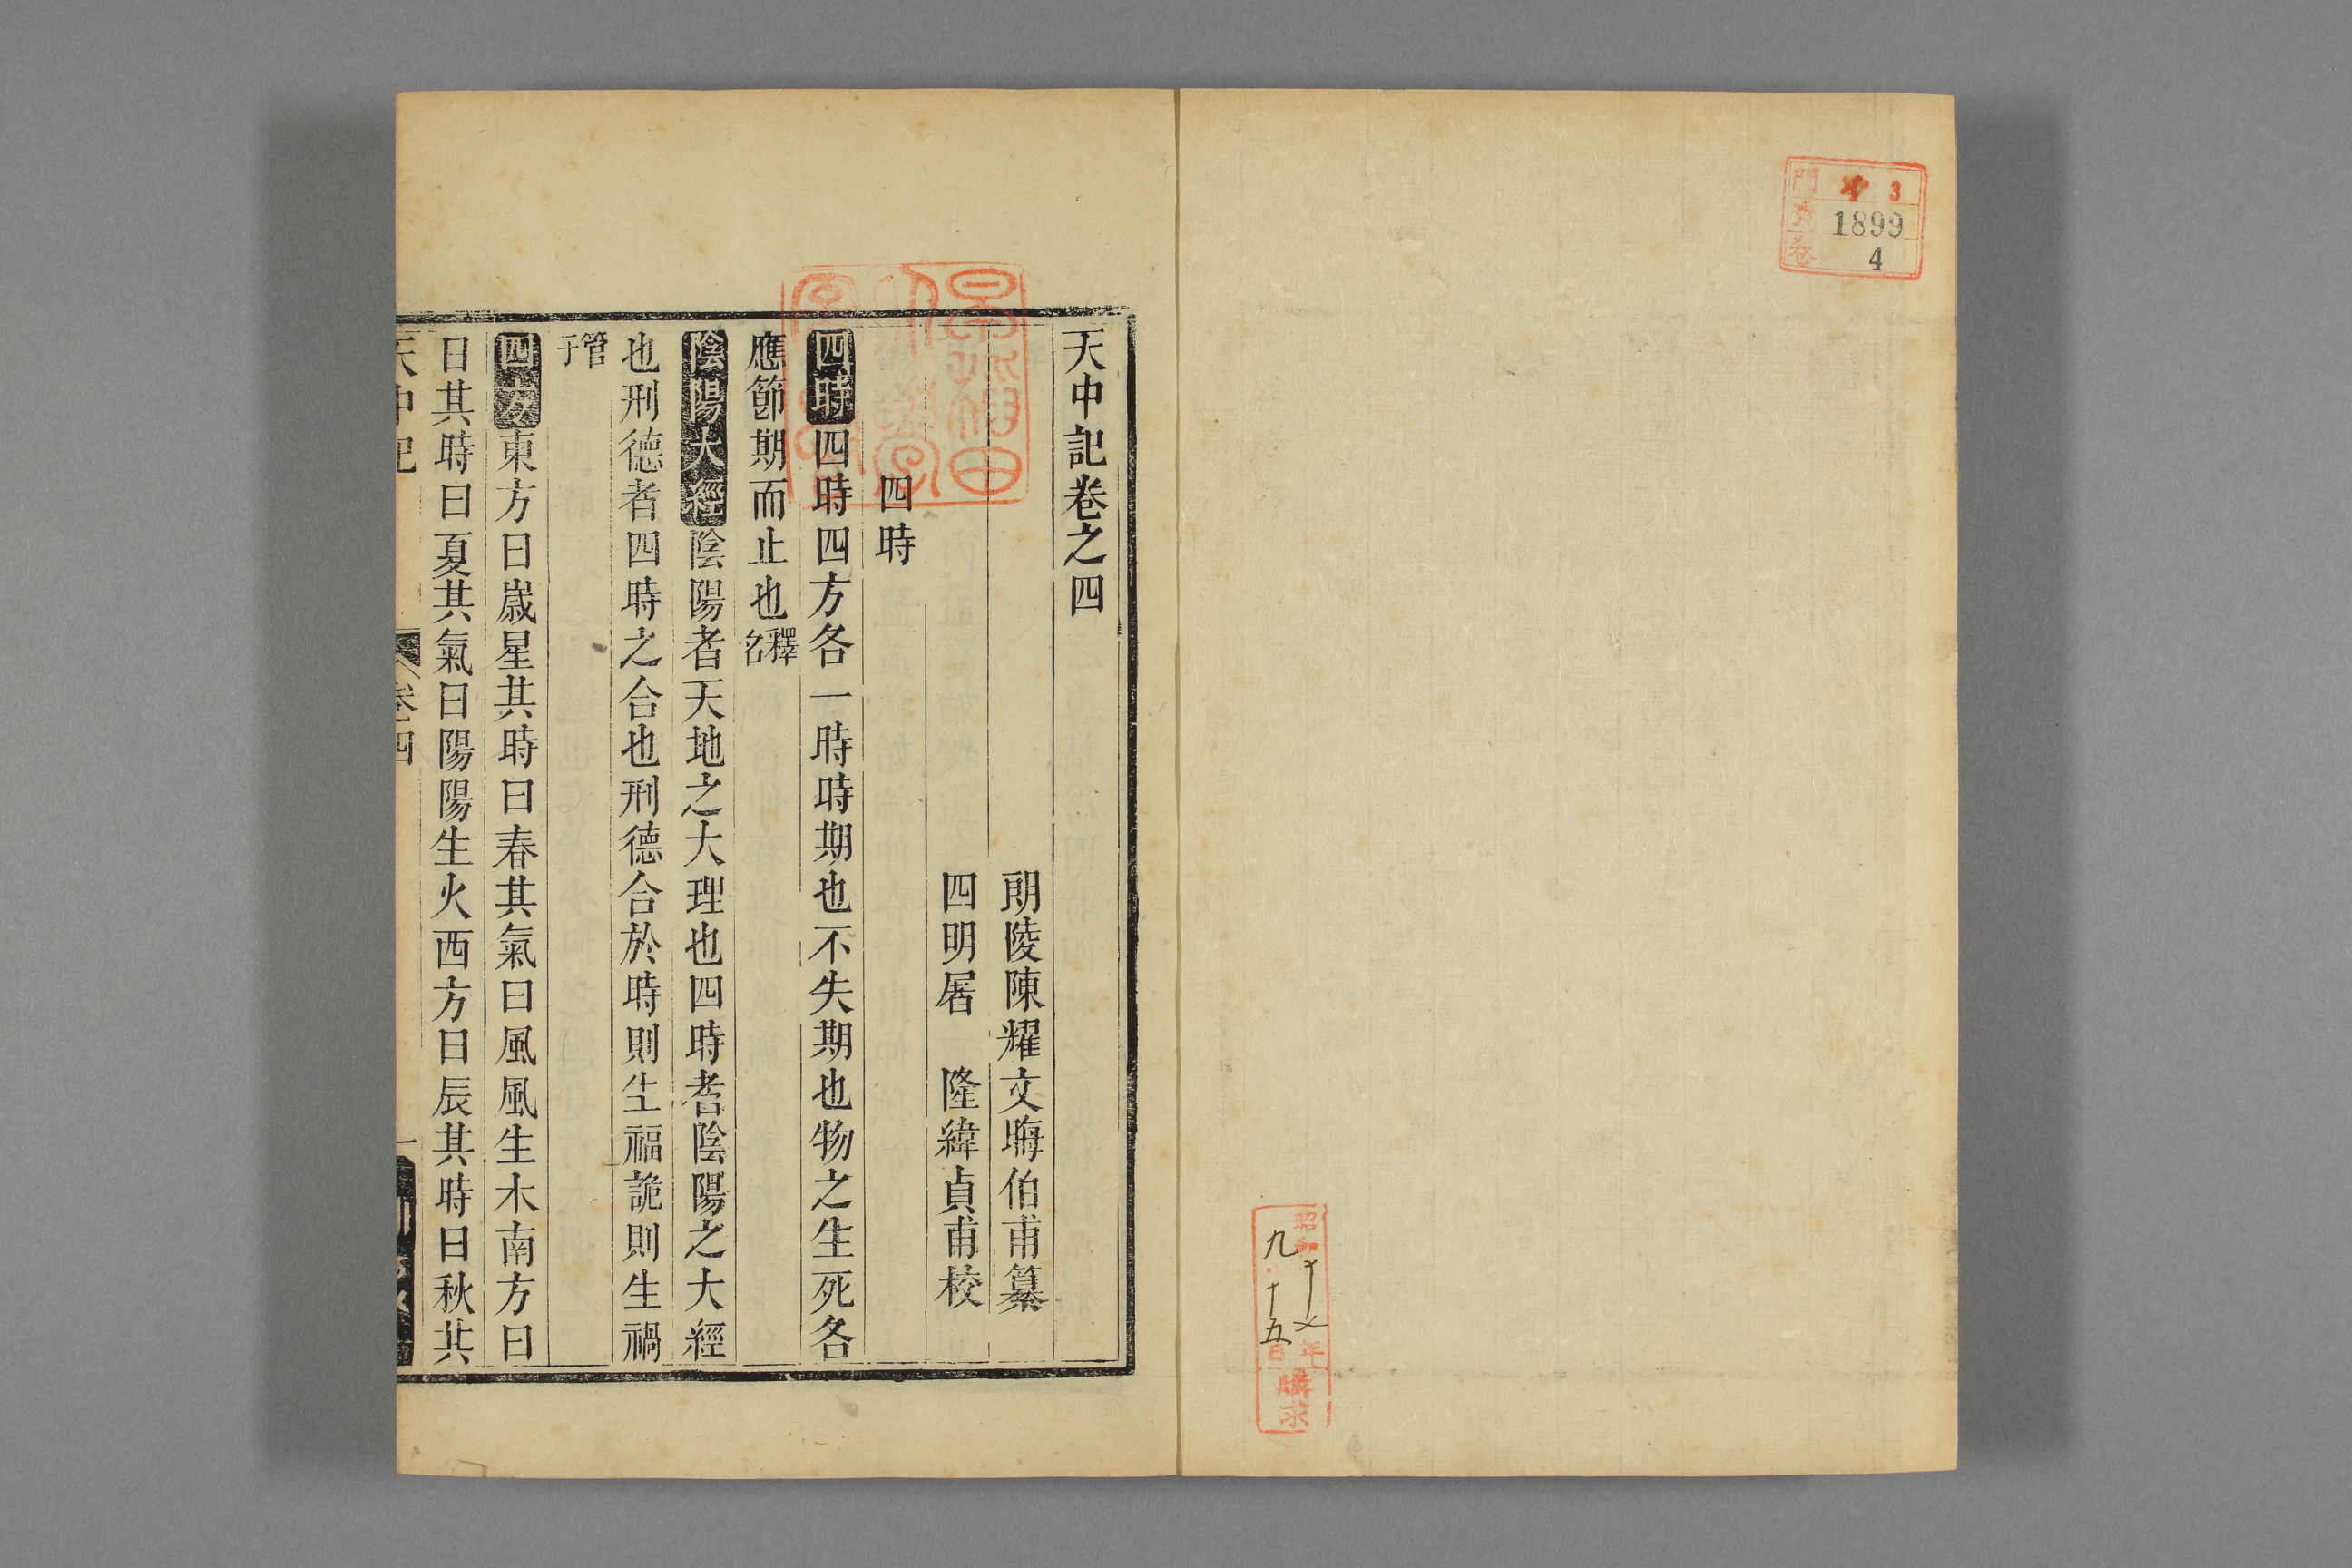 門 3
1899
卷 4
昭和十七年
九 十五日
購求
早稲田
大學
圖書
天中記卷之四
朗陵陳耀文晦伯甫纂
四明屠 隆緯貞甫校
四時
四時四時四方各一時時期也不失期也物之生死各
應節期而止也釋名
陰陽大經陰陽者天地之大理也四時者陰陽之大經
也刑德者四時之合也刑德合於時則生福詭則生禍
管子
四方東方曰歲星其時曰春其氣曰風風生木南方曰
日其時曰夏其氣曰陽陽生火西方曰辰其時曰秋其
天中記 卷四 一